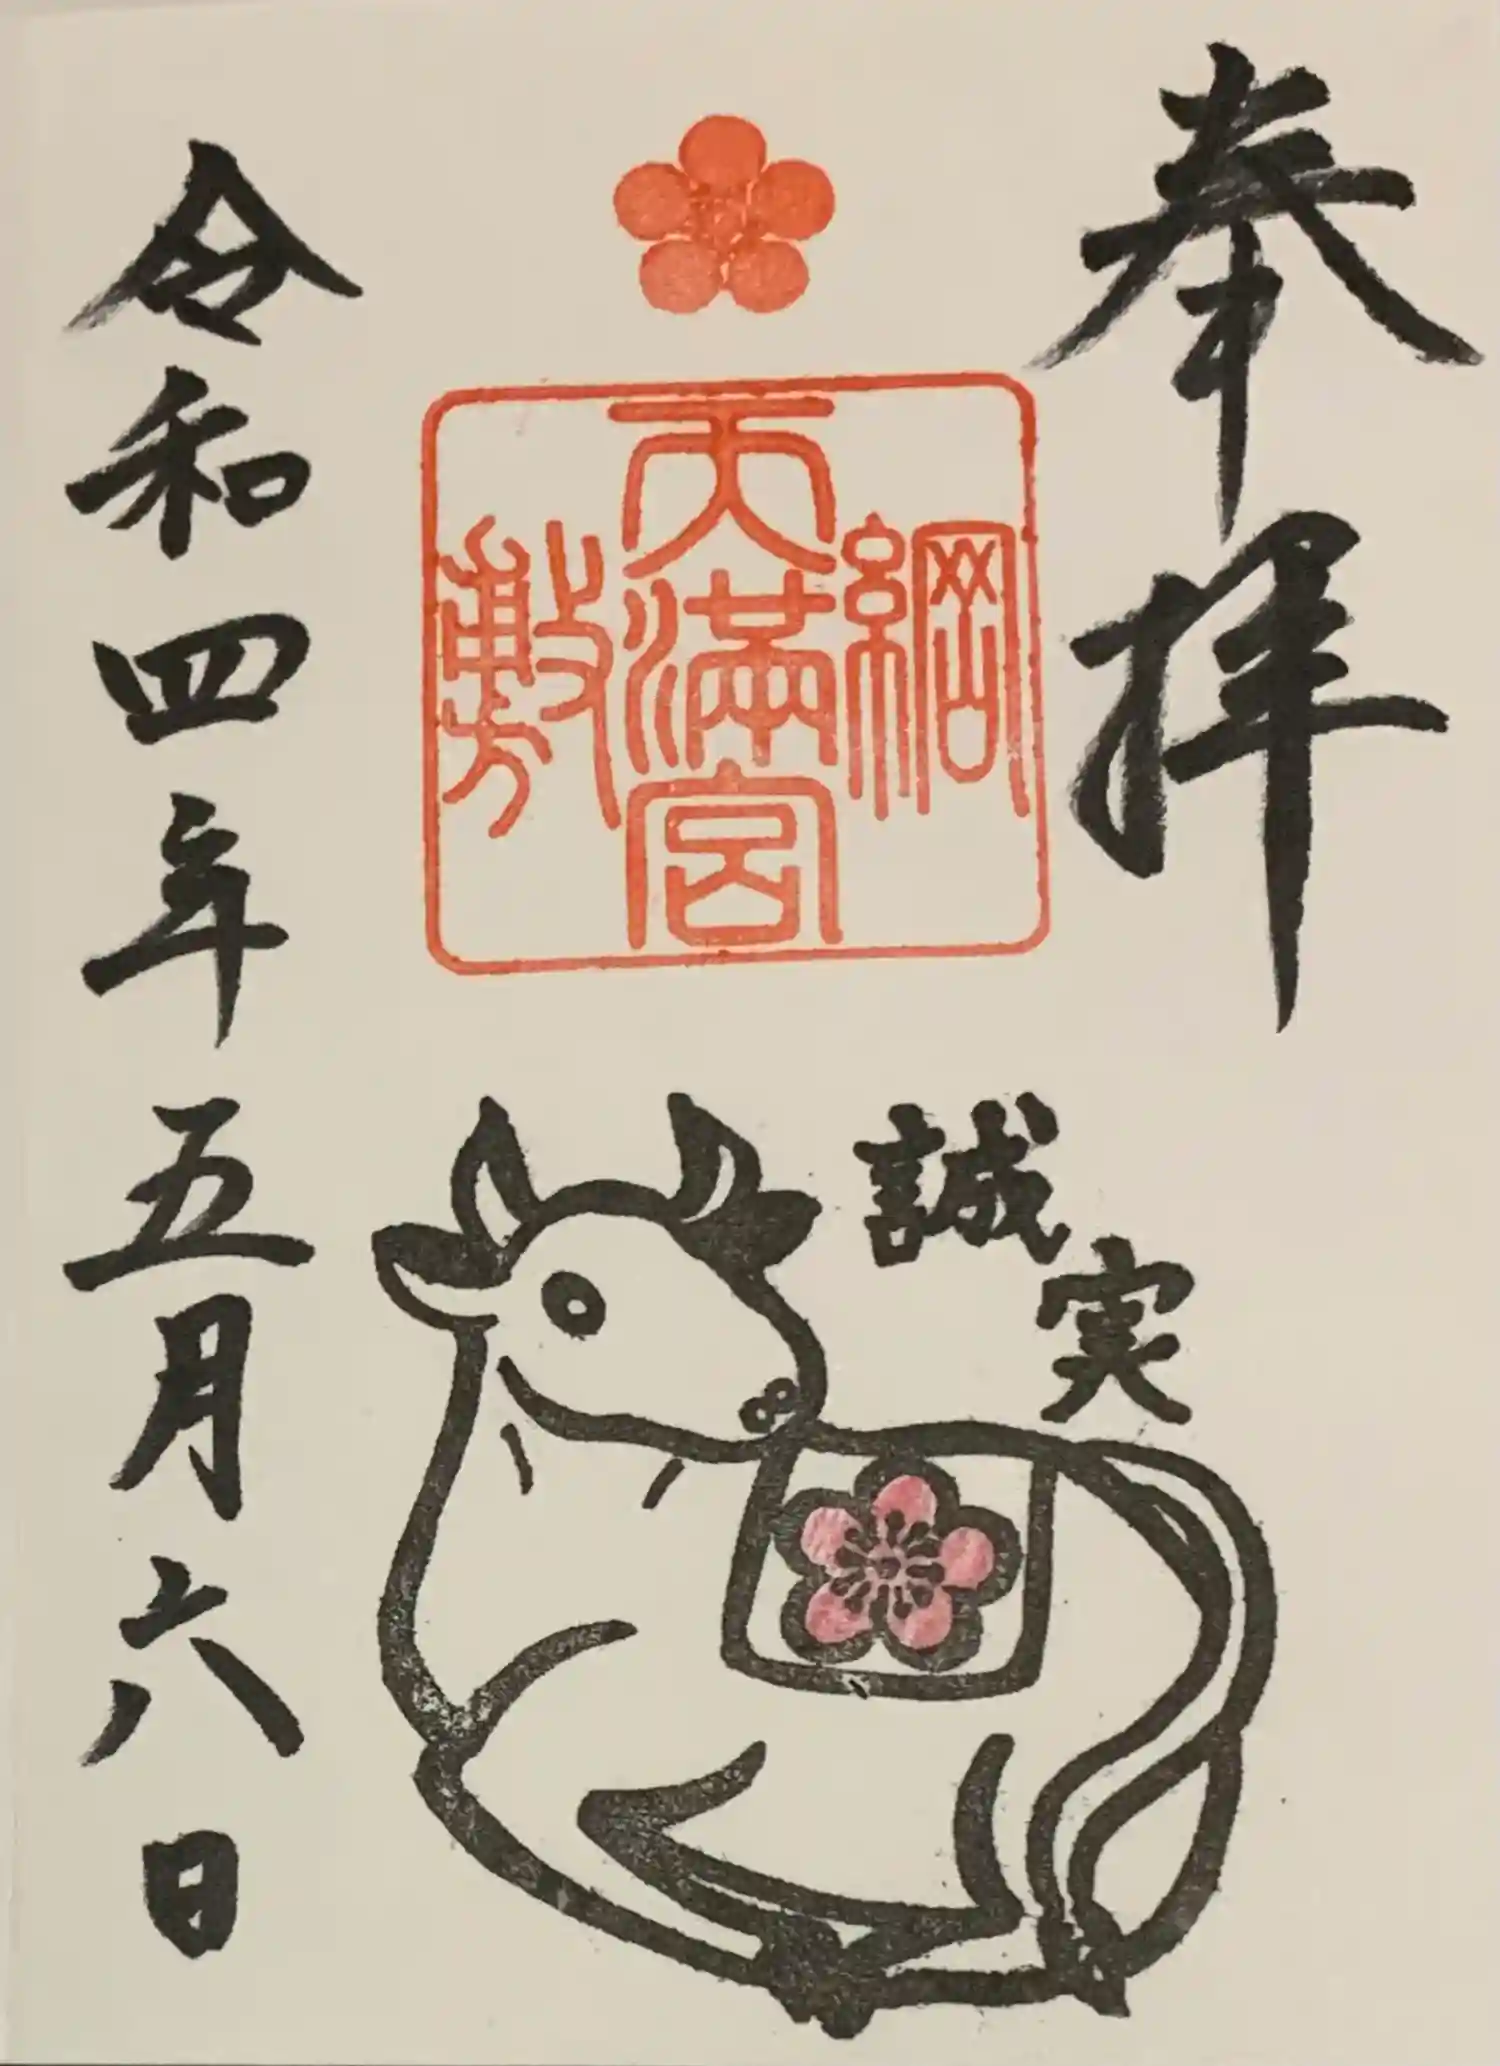 奉拝
綱
天満宮
敷
誠実
令和四年五月六日